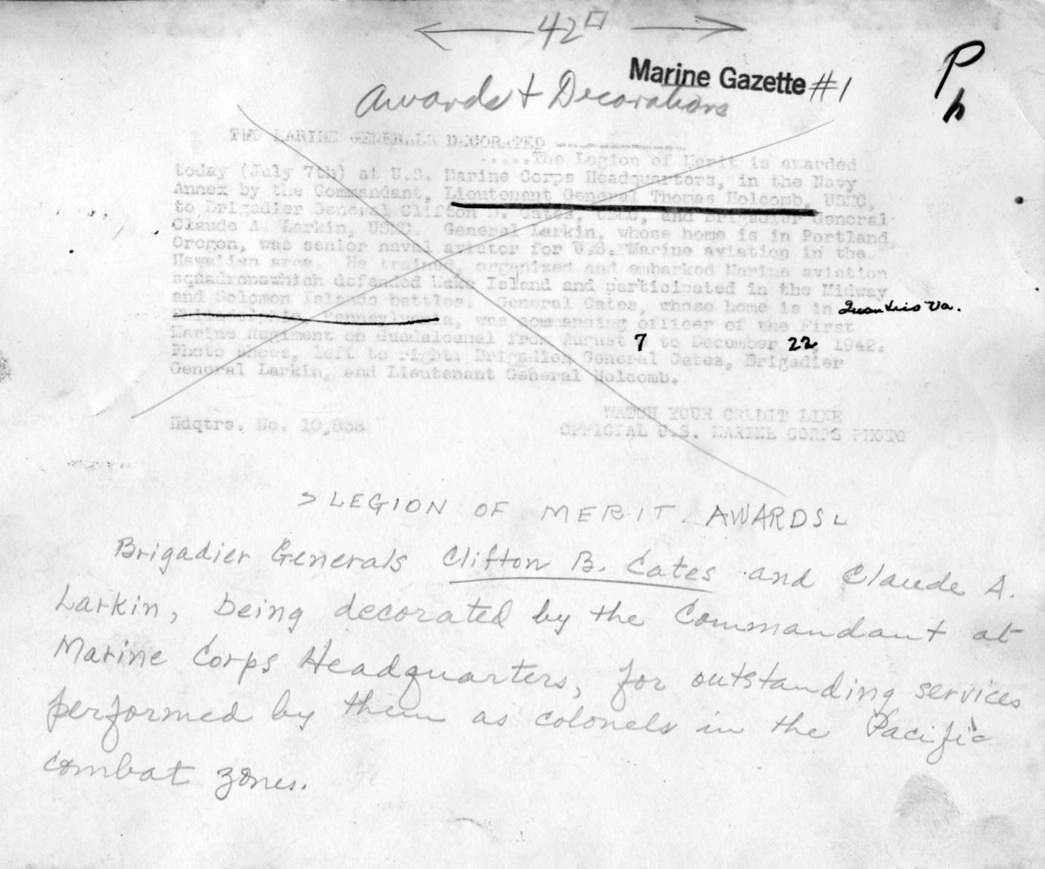 42
Marine Gazette #1
P
h
Awards + Decorations
TWO MARINE GENERALS DECORATED
.....The Legion of Merit is awarded
today (July 7th) at U.S. Marine Corps Headquarters, in the Navy
Annex by the Commandant, Lieutenant General Thomas Holcomb, USMC,
to Brigadier General Clifton B. Cates, USMC, and Brigadier General
Claude A. Larkin, USMC. General Larkin, whose home is in Portland,
Oregon, was senior naval aviator for U.S. Marine aviation in the
Hawaiian area. He trained, organized and embarked Marine aviation
squadronswhich defended Wake Island and participated in the Midway
and Solomon Islands battles. General Cates, whose home is in Quantico Va.
Pennsylvania, was commanding officer of the First
Marine Regiment on Guadalcanal from August 7 to December 22 1942.
Photo shows, left to right: Brigadier General Cates, Brigadier
General Larkin, and Lieutenant General Holcomb.
WATCH YOUR CREDIT LINE
Hdqtrs. No.
OFFICIAL U.S. MARINE CORPS PHOTO
>LEGION OF MERIT AWARDS
Brigadier Generals Clifton B. Cates and Claude A.
Larkin, being decorated by the Commandant at
Marine Corps Headquarters, for outstanding services
performed by them as colonels in the Pacific
combat zones.